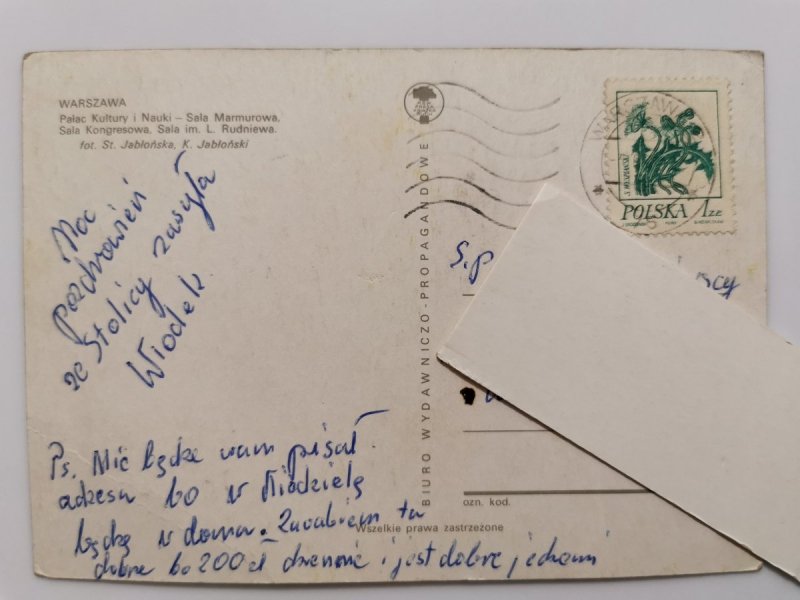 WARSZAWA
Pałac Kultury i Nauki – Sala Marmurowa,
Sala Kongresowa, Sala im. L. Rudniewa.
fot. St. Jabłońska, K. Jabłoński
Moc
pozdrowień
ze Stolicy zasyła
Włodek
Ps. Nie będę wam pisał
adresu bo w Niedzielę
będę w domu. Zarabiam tu
dobrze bo 200 zł dziennie i jest dobre jedzenie
BIURO WYDAWNICZO-PROPAGANDOWE
Wszelkie prawa zastrzeżone
WARSZAWA
POLSKA 1 ZŁ
S.P
ozn. kod.